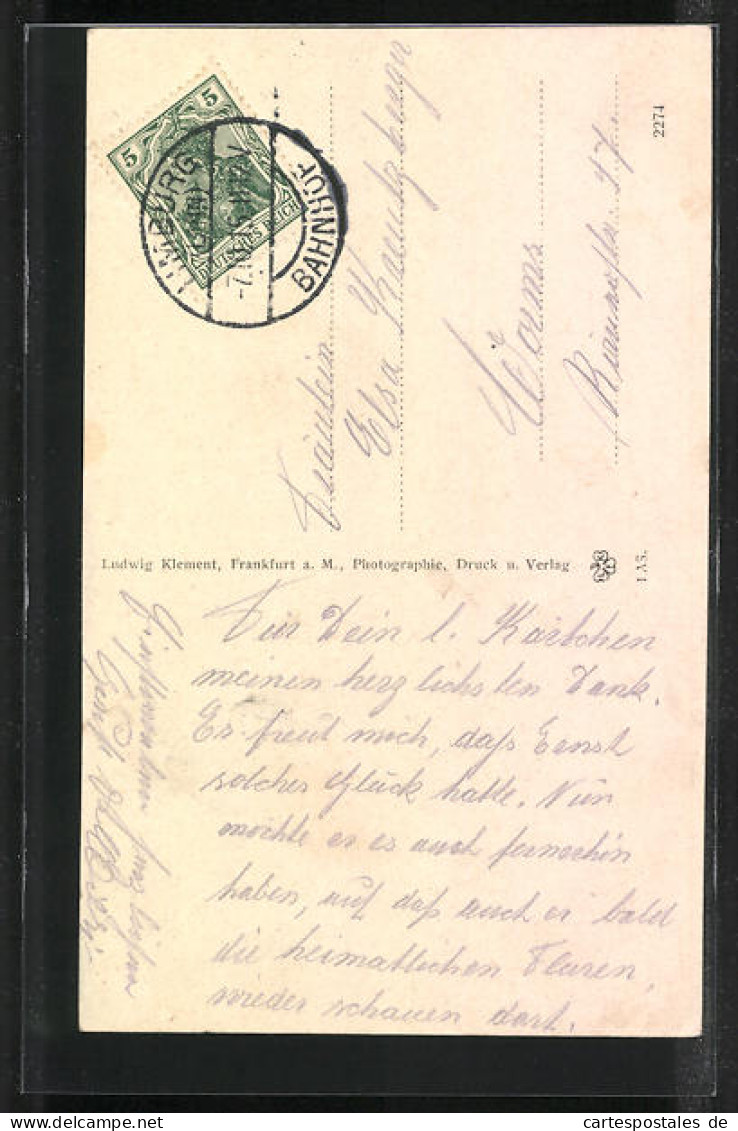 5
5
DEUTSCHES REICH
LIMBURG
BAHNHOF
2274
Fräulein
Elsa
Worms
Ludwig Klement, Frankfurt a. M., Photographie, Druck u. Verlag
Für Dein l. Kärtchen
meinen herzlichsten Dank.
Es freut mich, daß Ernst
solches Glück hatte. Nun
möchte er es auch fernerhin
haben, auf daß auch er bald
die heimatlichen Fluren,
wieder schauen darf.
cartespostales.de